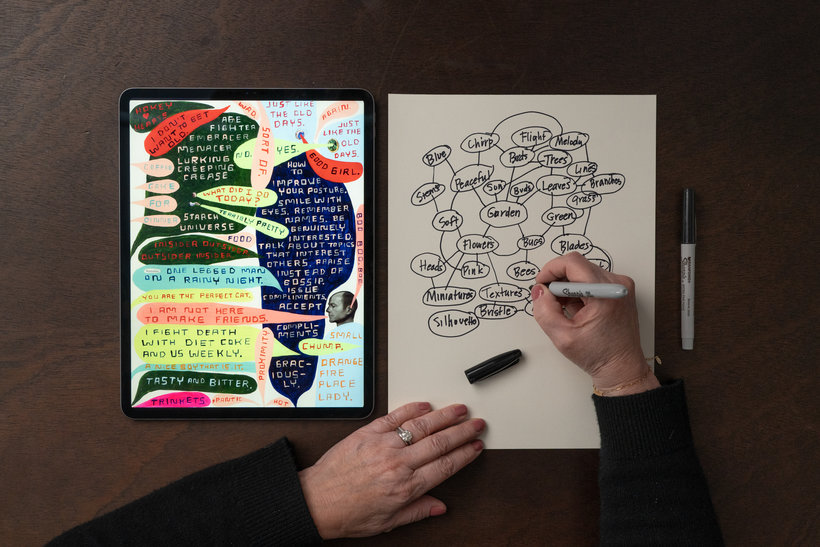 HOKEY
HEARTS
I DON'T
WANT TO GET
OLD.
AGE
FIGHTER
EMBRACER
MENACER
LURKING
CREEPING
CREASE
COFFEE
CAKE
FOR
DINNER
STARCH
UNIVERSE
WORD
SORT OF.
NO.
YES.
JUST LIKE
THE OLD
DAYS.
AGAIN.
JUST
LIKE THE
OLD
DAYS.
GOOD GIRL.
WHAT DID I DO
TODAY?
TERRIBLY PRETTY
FOOD
INSIDER OUTSIDER
OUTSIDER INSIDER
ONE LEGGED MAN
ON A RAINY NIGHT.
YOU ARE THE PERFECT CAT.
I AM NOT HERE
TO MAKE FRIENDS.
I FIGHT DEATH
WITH DIET COKE
AND US WEEKLY.
A NICE SOY THAT IS IT.
TASTY AND BITTER.
TRINKETS
PROXIMITY
HOT
HOW
TO
IMPROVE
YOUR POSTURE,
SMILE WITH
EYES, REMEMBER
NAMES, BE
GENUINELY
INTERESTED,
TALK ABOUT TOPICS
THAT INTEREST
OTHERS, PRAISE
INSTEAD OF
GOSSIP,
ISSUE
COMPLIMENTS,
ACCEPT
COMPLI-
MENTS
GRAC-
IOUS-
LY.
SMALL
CHUMP.
ORANGE
FIRE
PLACE
LADY.
Flight
Chirp
Melody
Blue
Beets
Trees
Lines
Peaceful
Sun
Birds
Leaves
Branches
Grass
Stems
Soft
Garden
Green
Flowers
Bugs
Blades
Heads
Pink
Bees
Miniatures
Textures
Bristle
Silhouette
Sharpie